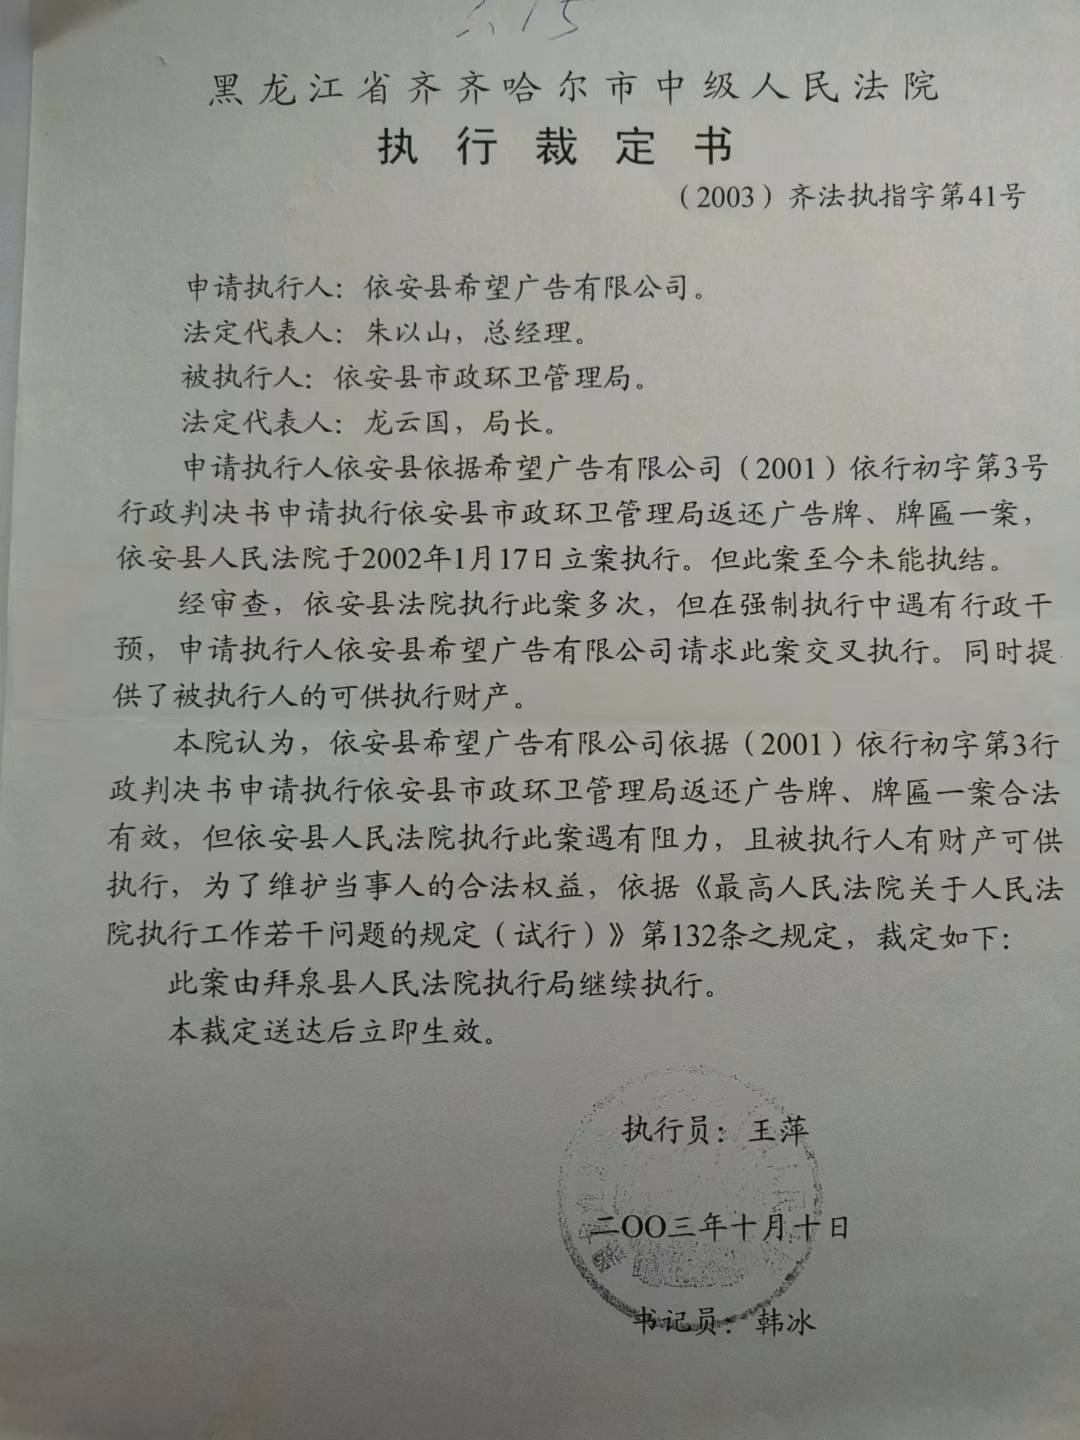 黑龙江省齐齐哈尔市中级人民法院
执行裁定书
（2003）齐法执指字第41号
申请执行人：依安县希望广告有限公司。
法定代表人：朱以山，总经理。
被执行人：依安县市政环卫管理局。
法定代表人：龙云国，局长。
申请执行人依安县依据希望广告有限公司（2001）依行初字第3号
行政判决书申请执行依安县市政环卫管理局返还广告牌、牌匾一案，
依安县人民法院于2002年1月17日立案执行。但此案至今未能执结。
经审查，依安县法院执行此案多次，但在强制执行中遇有行政干
预，申请执行人依安县希望广告有限公司请求此案交叉执行。同时提
供了被执行人的可供执行财产。
本院认为，依安县希望广告有限公司依据（2001）依行初字第3行
政判决书申请执行依安县市政环卫管理局返还广告牌、牌匾一案合法
有效，但依安县人民法院执行此案遇有阻力，且被执行人有财产可供
执行，为了维护当事人的合法权益，依据《最高人民法院关于人民法
院执行工作若干问题的规定（试行）》第132条之规定，裁定如下：
此案由拜泉县人民法院执行局继续执行。
本裁定送达后立即生效。
执行员：王萍
二OO三年十月十日
书记员：韩冰